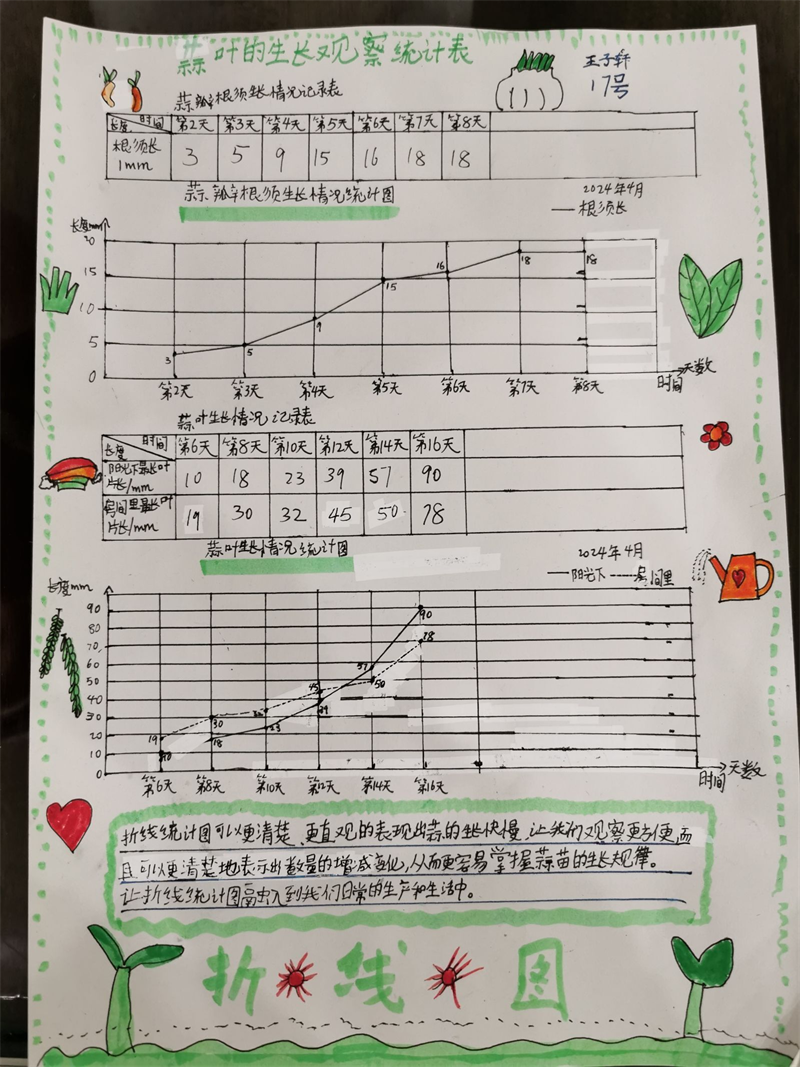 蒜叶的生长观察统计表
王子轩
17号
蒜瓣根须生长情况记录表
长度 时间 第2天 第3天 第4天 第5天 第6天 第7天 第8天
根须长/mm 3 5 9 15 16 18 18
蒜瓣根须生长情况统计图
2024年4月
根须长
长度mm
20
15
10
5
0
3 5 9 15 16 18 18
第2天 第3天 第4天 第5天 第6天 第7天 第8天
时间 天数
蒜叶生长情况记录表
长度 时间 第6天 第8天 第10天 第12天 第14天 第16天
阳光下最长叶片长/mm 10 18 23 39 57 90
房间里最长叶片长/mm 19 30 32 45 50 78
蒜叶生长情况统计图
2024年4月
阳光下 房间里
长度mm
90
80
70
60
50
40
30
20
10
0
19 30 45 50 78
10 18 23 39 57 90
第6天 第8天 第10天 第12天 第14天 第16天
时间 天数
折线统计图可以更清楚、更直观的表现出蒜的生长快慢,让我们观察更方便,而
且可以更清楚地表示出数量的增减变化,从而更容易掌握蒜苗的生长规律。
让折线统计图融入到我们日常的生产和生活中。
折线图